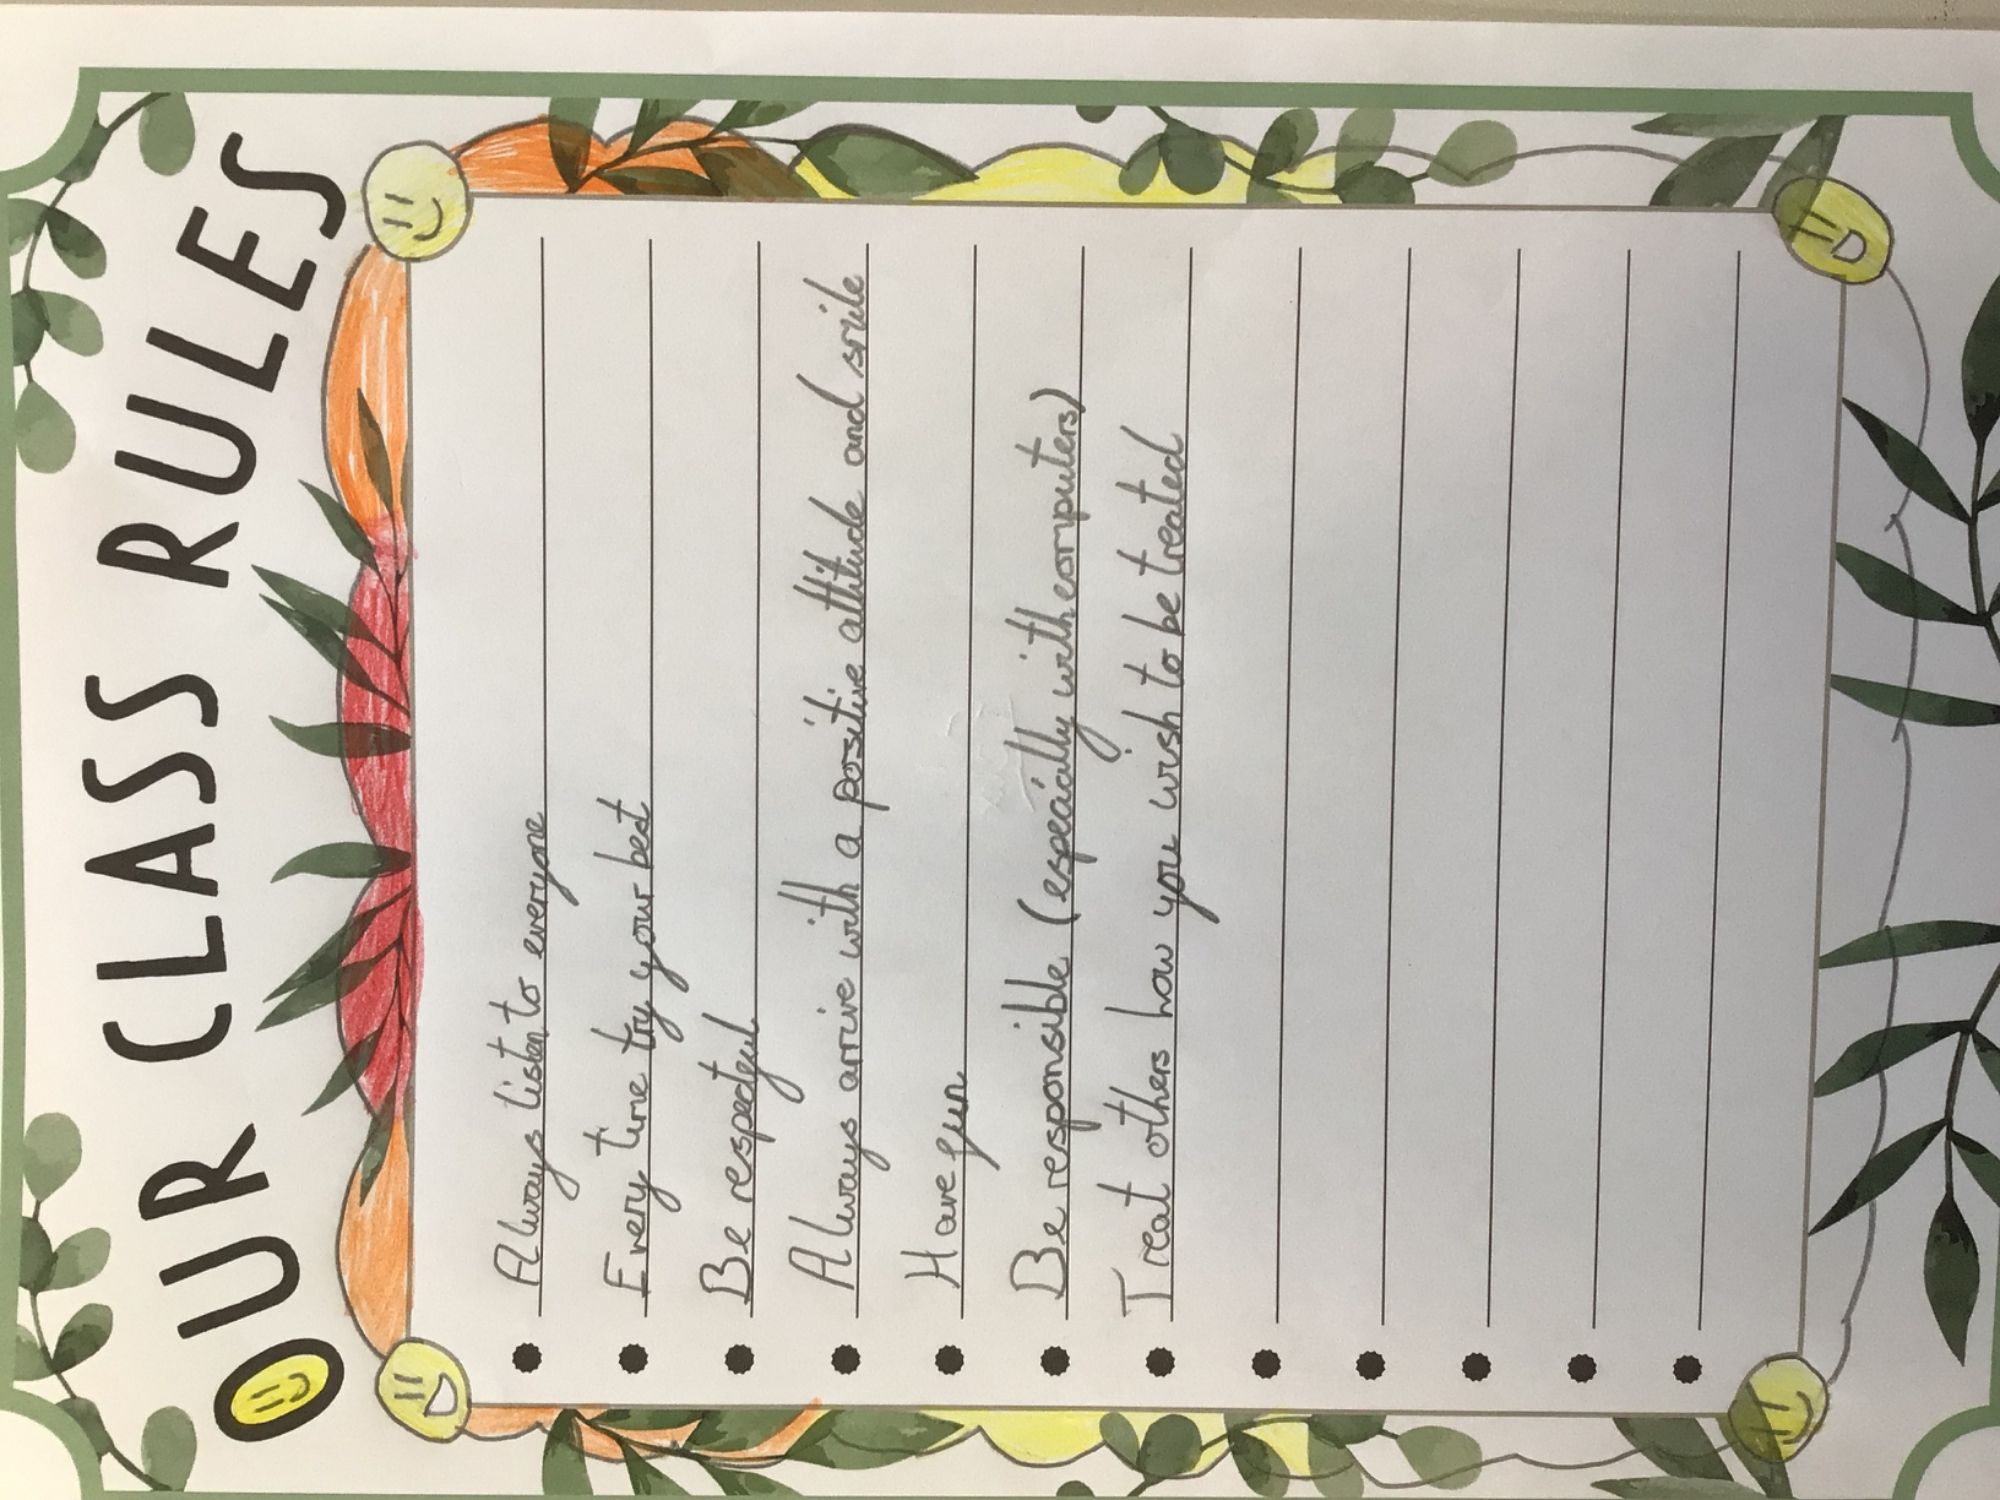 OUR CLASS RULES
Always listen to everyone
Every time try your best
Be respectful
Always arrive with a positive attitude and smile
Have fun
Be responsible (especially with computers)
Treat others how you wish to be treated